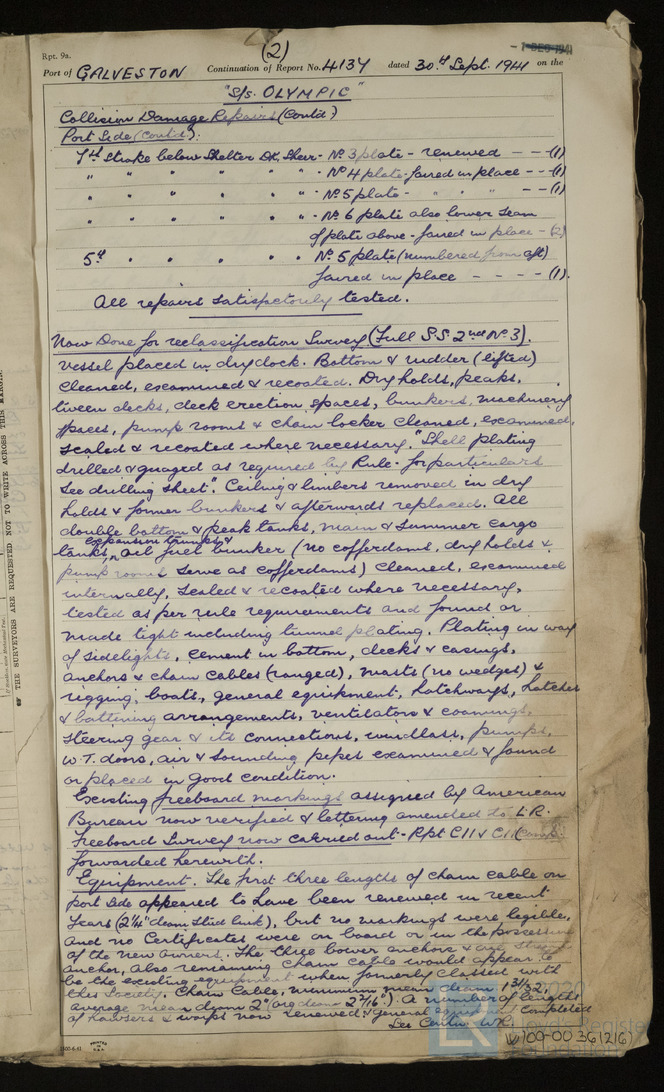 Rpt. 9a.
(2)
Port of GALVESTON Continuation of Report No. 4134 dated 30th Sept. 1941 on the
"S/S. OLYMPIC"
Collision Damage Repairs (Contd)
Port Side (Contd):
7th Strake below Shelter Dk. Sheer - No. 3 plate - renewed - - - (1)
" " " " " " - No. 4 plate - faired in place - - (1)
" " " " " " - No. 5 plate - " " " - - (1)
" " " " " " - No. 6 plate also lower seam
of plate above - faired in place - (2)
5th " " " " " No. 5 plate (numbered from aft)
faired in place - - - - (1).
All repairs satisfactorily tested.
Now Done for reclassification Survey (Full S.S. 2nd No. 3).
Vessel placed in drydock. Bottom & rudder (lifted)
cleaned, examined & recoated. Dry holds, peaks,
tween decks, deck erection spaces, bunkers, machinery
spaces, pump rooms & chain locker cleaned, examined,
scaled & recoated where necessary. "Shell plating
drilled & guaged as required by Rule - for particulars
see drilling sheet". Ceiling & limbers removed in dry
holds & former bunkers & afterwards replaced. All
double bottom & peak tanks, main & summer cargo
expansion trunks &
tanks, oil fuel bunker (no cofferdams, dry holds &
pump rooms serve as cofferdams) cleaned, examined
internally, scaled & recoated where necessary,
tested as per rule requirements and found or
made tight including tunnel plating. Plating in way
of sidelights, cement in bottom, decks & casings,
anchors & chain cables (ranged), masts (no wedges) &
rigging, boats, general equipment, hatchways, hatches
& battening arrangements, ventilators & coamings,
steering gear & its connections, windlass, pumps,
W.T. doors, air & sounding pipes examined & found
or placed in good condition.
Existing freeboard markings assigned by American
Bureau now verified & lettering amended to L.R.
Freeboard Survey now carried out - Rpt C11 & C11 (Comp)
forwarded herewith.
Equipment. The first three lengths of chain cable on
port side appeared to have been renewed in recent
years (2 1/4" diam stud link), but no markings were legible,
and no Certificates were on board or in the possession
of the new owners. The three bower anchors & one stream
anchor, also remaining chain cable would appear to
be the existing equipment when formerly classed with
this Society. Chain Cable, minimum mean diam 1 31/32",
average mean diam 2" (orig diam 2 3/16"). A number of lengths
of hawsers & warps now renewed & general equipment completed
THE SURVEYORS ARE REQUESTED NOT TO WRITE ACROSS THIS MARGIN.
PRINTED IN U.S.A.
2020
Lloyd's Register
Foundation
W109-0036 (216)